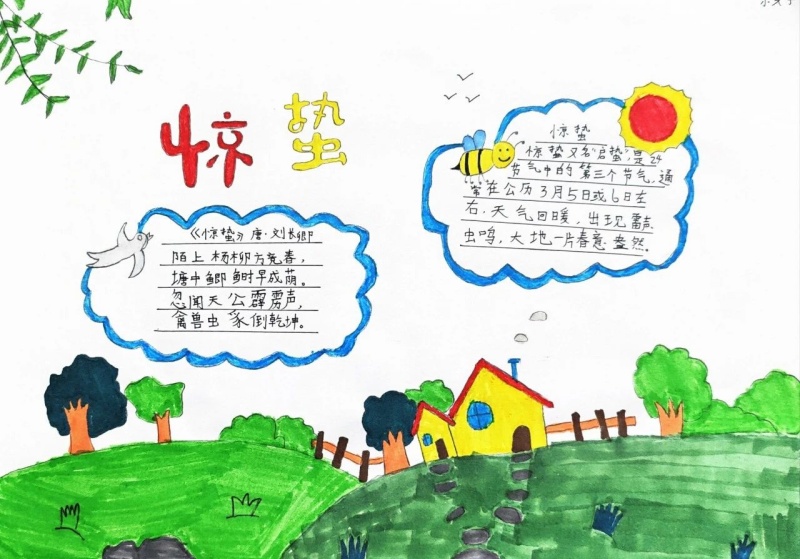 惊蛰
《惊蛰》唐·刘长卿
陌上杨柳方竞春，
塘中鲫鲥早成荫。
忽闻天公霹雳声，
禽兽虫豸倒乾坤。
惊蛰
惊蛰又名"启蛰"，是24
节气中的第三个节气，通
常在公历3月5日或6日左
右．天气回暖，出现雷声
虫鸣，大地一片春意盎然。